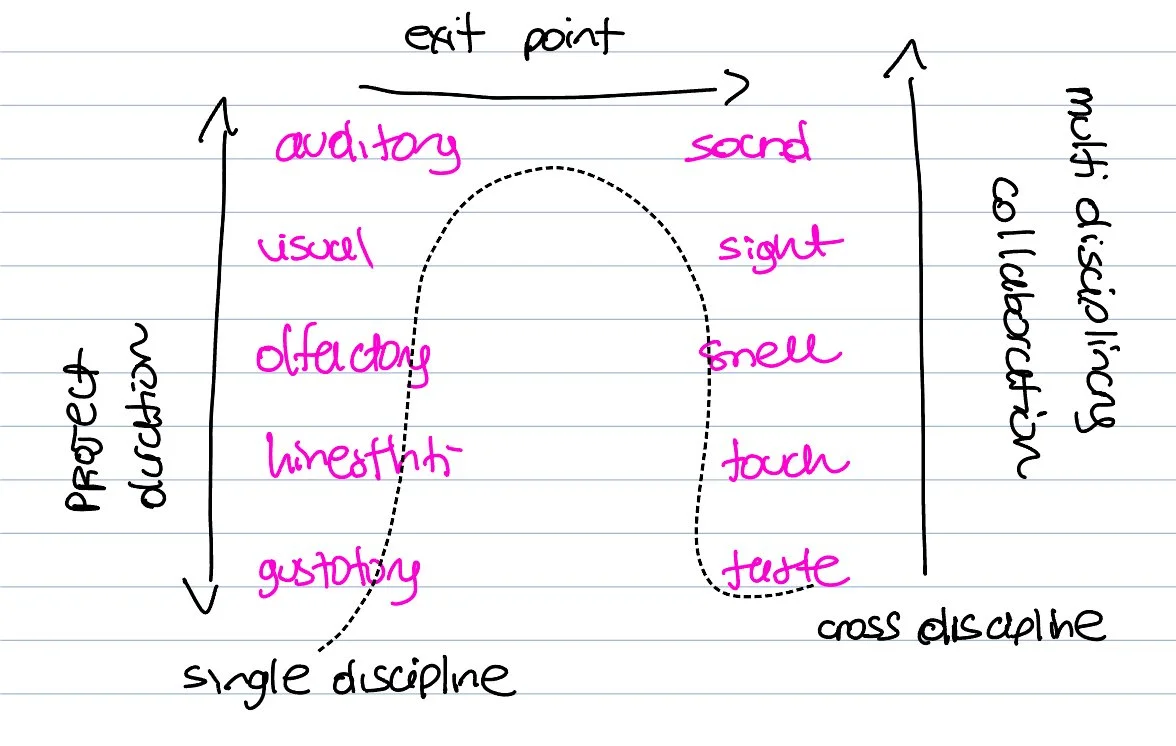 exit point
auditory sound
visual sight
olfactory smell
touch
gustotory taste
PROJECT
duration
multi disciplinary
collaboration
single discipline
cross discipline